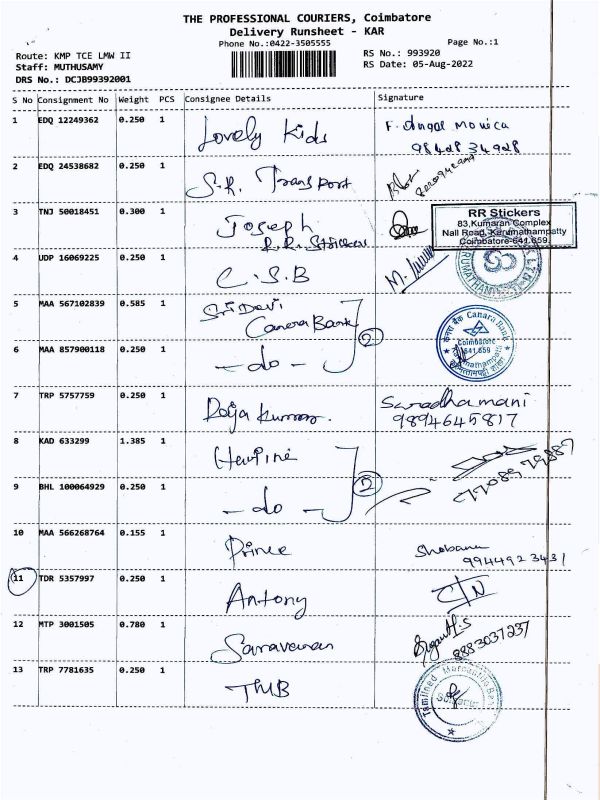 THE PROFESSIONAL COURIERS, Coimbatore
Delivery Runsheet - KAR
Phone No.:0422-3505555 Page No.:1
Route: KMP TCE LMW II RS No.: 993920
Staff: MUTHUSAMY RS Date: 05-Aug-2022
DRS No.: DCJB99392001
S No Consignment No Weight PCS Consignee Details Signature
1 EDQ 12249362 0.250 1 Lovely Kids F. Angal Monica
98428 34928
2 EDQ 24538682 0.250 1 S.R. Transport
3 TNJ 50018451 0.300 1 Joseph
R.R. Stickers
RR Stickers
83,Kumaran Complex
Nall Road, Karumathampatty
Coimbatore-641 659.
4 UDP 16069225 0.250 1 C.S.B
5 MAA 567102839 0.585 1 Sri Devi
Canera Bank
Canara Bank
Coimbatore
641 659
6 MAA 857900118 0.250 1 - do - 2
7 TRP 5757759 0.250 1 Raja Kumar. Saradhamani
9894645817
8 KAD 633299 1.385 1
9 BHL 100064929 0.250 1 - do - 2
10 MAA 566268764 0.155 1 Prince Shobana
9944923431
11 TDR 5357997 0.250 1 Antony
12 MTP 3001505 0.780 1 Saravanan
8883037237
13 TRP 7781635 0.250 1 TMB
Tamilnad Mercantile Bank